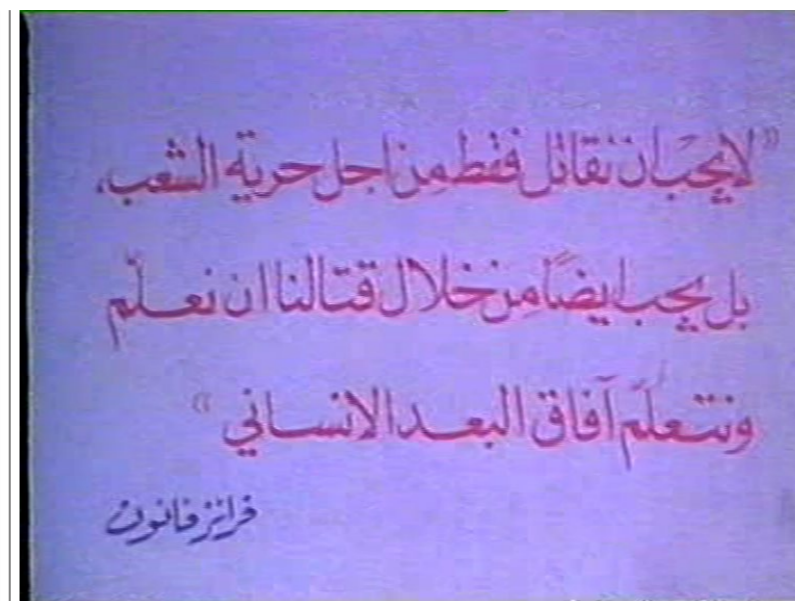 «لا يجب ان نقاتل فقط من اجل حرية الشعب،
بل يجب ايضًا من خلال قتالنا ان نعلّم
ونتعلّم آفاق البعد الانساني»
فرانز فانون